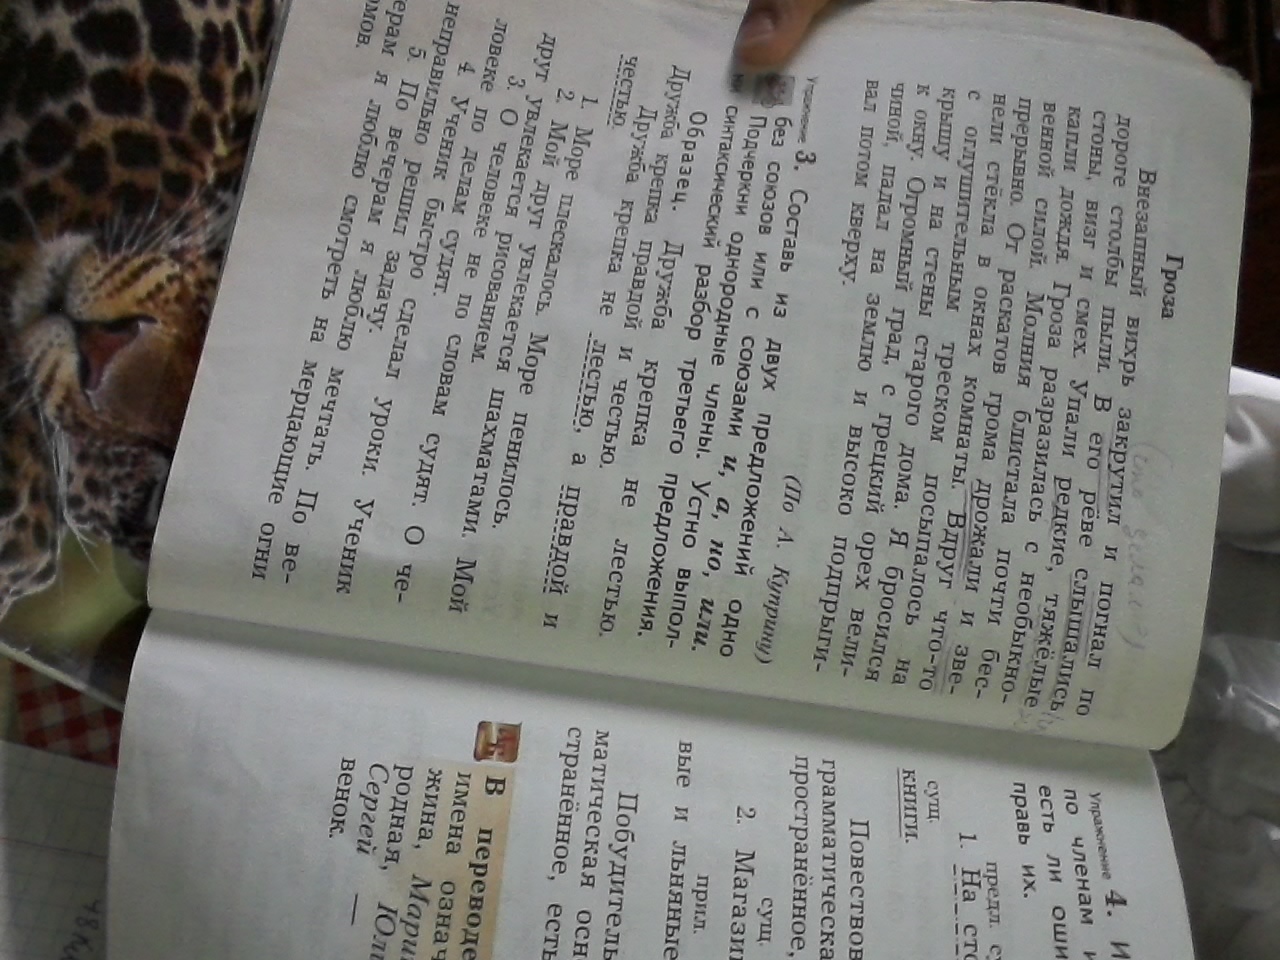 Гроза
Внезапный вихрь закрутил и погнал по
дороге столбы пыли. В его реве слышались
стоны, визг и смех. Упали редкие, тяжёлые
капли дождя. Гроза разразилась с необыкно-
венной силой. Молния блистала почти бес-
прерывно. От раскатов грома дрожали и зве-
нели стёкла в окнах комнаты. Вдруг что-то
с оглушительным треском посыпалось на
крышу и на стены старого дома. Я бросился
к окну. Огромный град, с грецкий орех вели-
чиной, падал на землю и высоко подпрыги-
вал потом кверху.
(По А. Куприну)
Упражнение 3. Составь из двух предложений одно
без союзов или с союзами и, а, но, или.
Подчеркни однородные члены. Устно выпол-
ни синтаксический разбор третьего предложения.
Образец. Дружба крепка не лестью.
Дружба крепка правдой и честью.
Дружба крепка не лестью, а правдой и
честью.
1. Море плескалось. Море пенилось.
2. Мой друг увлекается шахматами. Мой
друг увлекается рисованием.
3. О человеке не по словам судят. О че-
ловеке по делам судят.
4. Ученик быстро сделал уроки. Ученик
неправильно решил задачу.
5. По вечерам я люблю мечтать. По ве-
ерам я люблю смотреть на мерцающие огни
мов.
Упражнение 4. И
по членам и
есть ли оши
правь их.
предл. су
1. На сто
сущ.
книги.
Повествов
грамматическа
пространённое,
сущ.
2. Магази
прил.
вые и льняные
Побудитель
матическая осн
странённое, есть
В переводе
имена означ
жина, Мари
родная, Юли
Сергей —
венок.